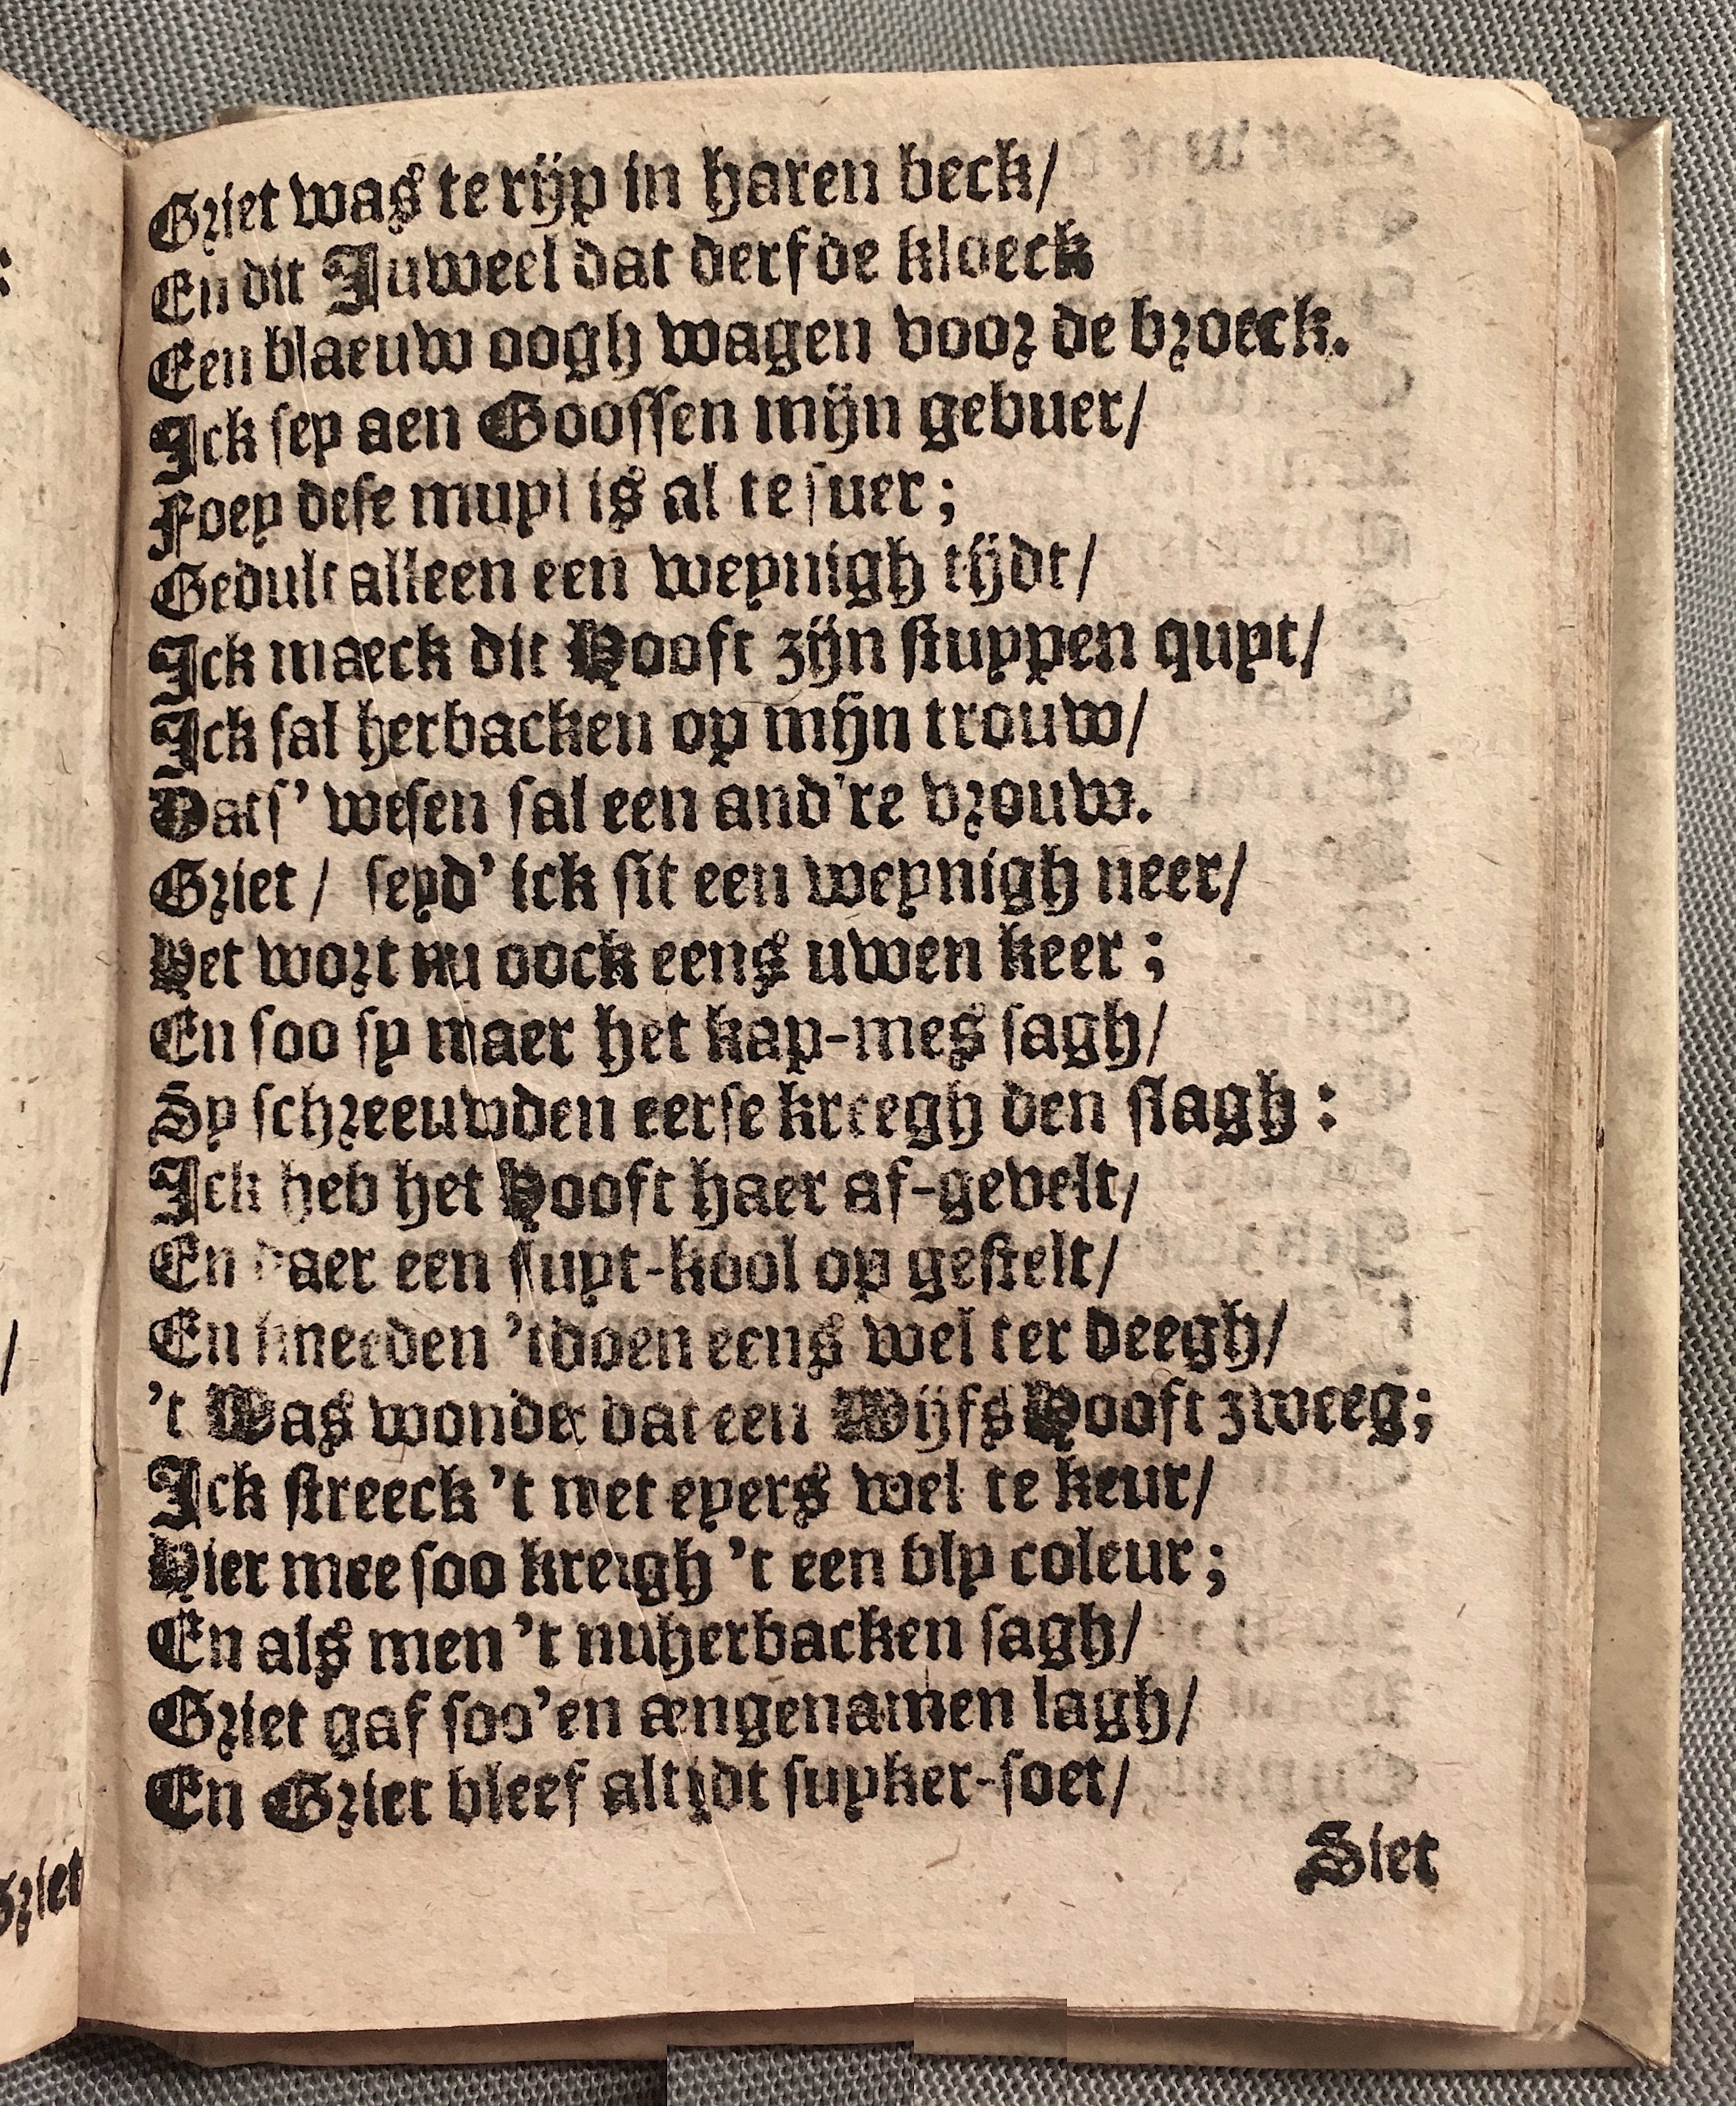 Griet was te rijp in haren beck/
En dit Juweel dat derfde kloeck
Een blaeuw oogh wagen voor de broeck.
Ick sey aen Goossen mijn gebuer/
Foey dese muyl is al te suer;
Gedult alleen een weynigh tijdt/
Ick maeck dit Hooft zijn stuypen quyt/
Ick sal herbacken op mijn trouw/
Dats' wesen sal een and're vrouw.
Griet / seyd' ick sit een weynigh neer/
Het wort nu oock eens uwen keer;
En soo sy maer het kap-mes sagh/
Sy schreeuwden eerse kreegh den slagh:
Ick heb het Hooft haer af-gevelt/
En daer een sluyt-kool op gestelt/
En kneeden 'tdoen eens wel ter deegh/
't Was wonder dat een Wijfs Hooft zweeg;
Ick streeck 't met eyers wel te keur/
Hier mee soo kreigh 't een bly coleur;
En als men 't nu herbacken sagh/
Griet gaf soo'en ængenamen lagh/
En Griet bleef altijdt suyker-soet/
Siet
Griet